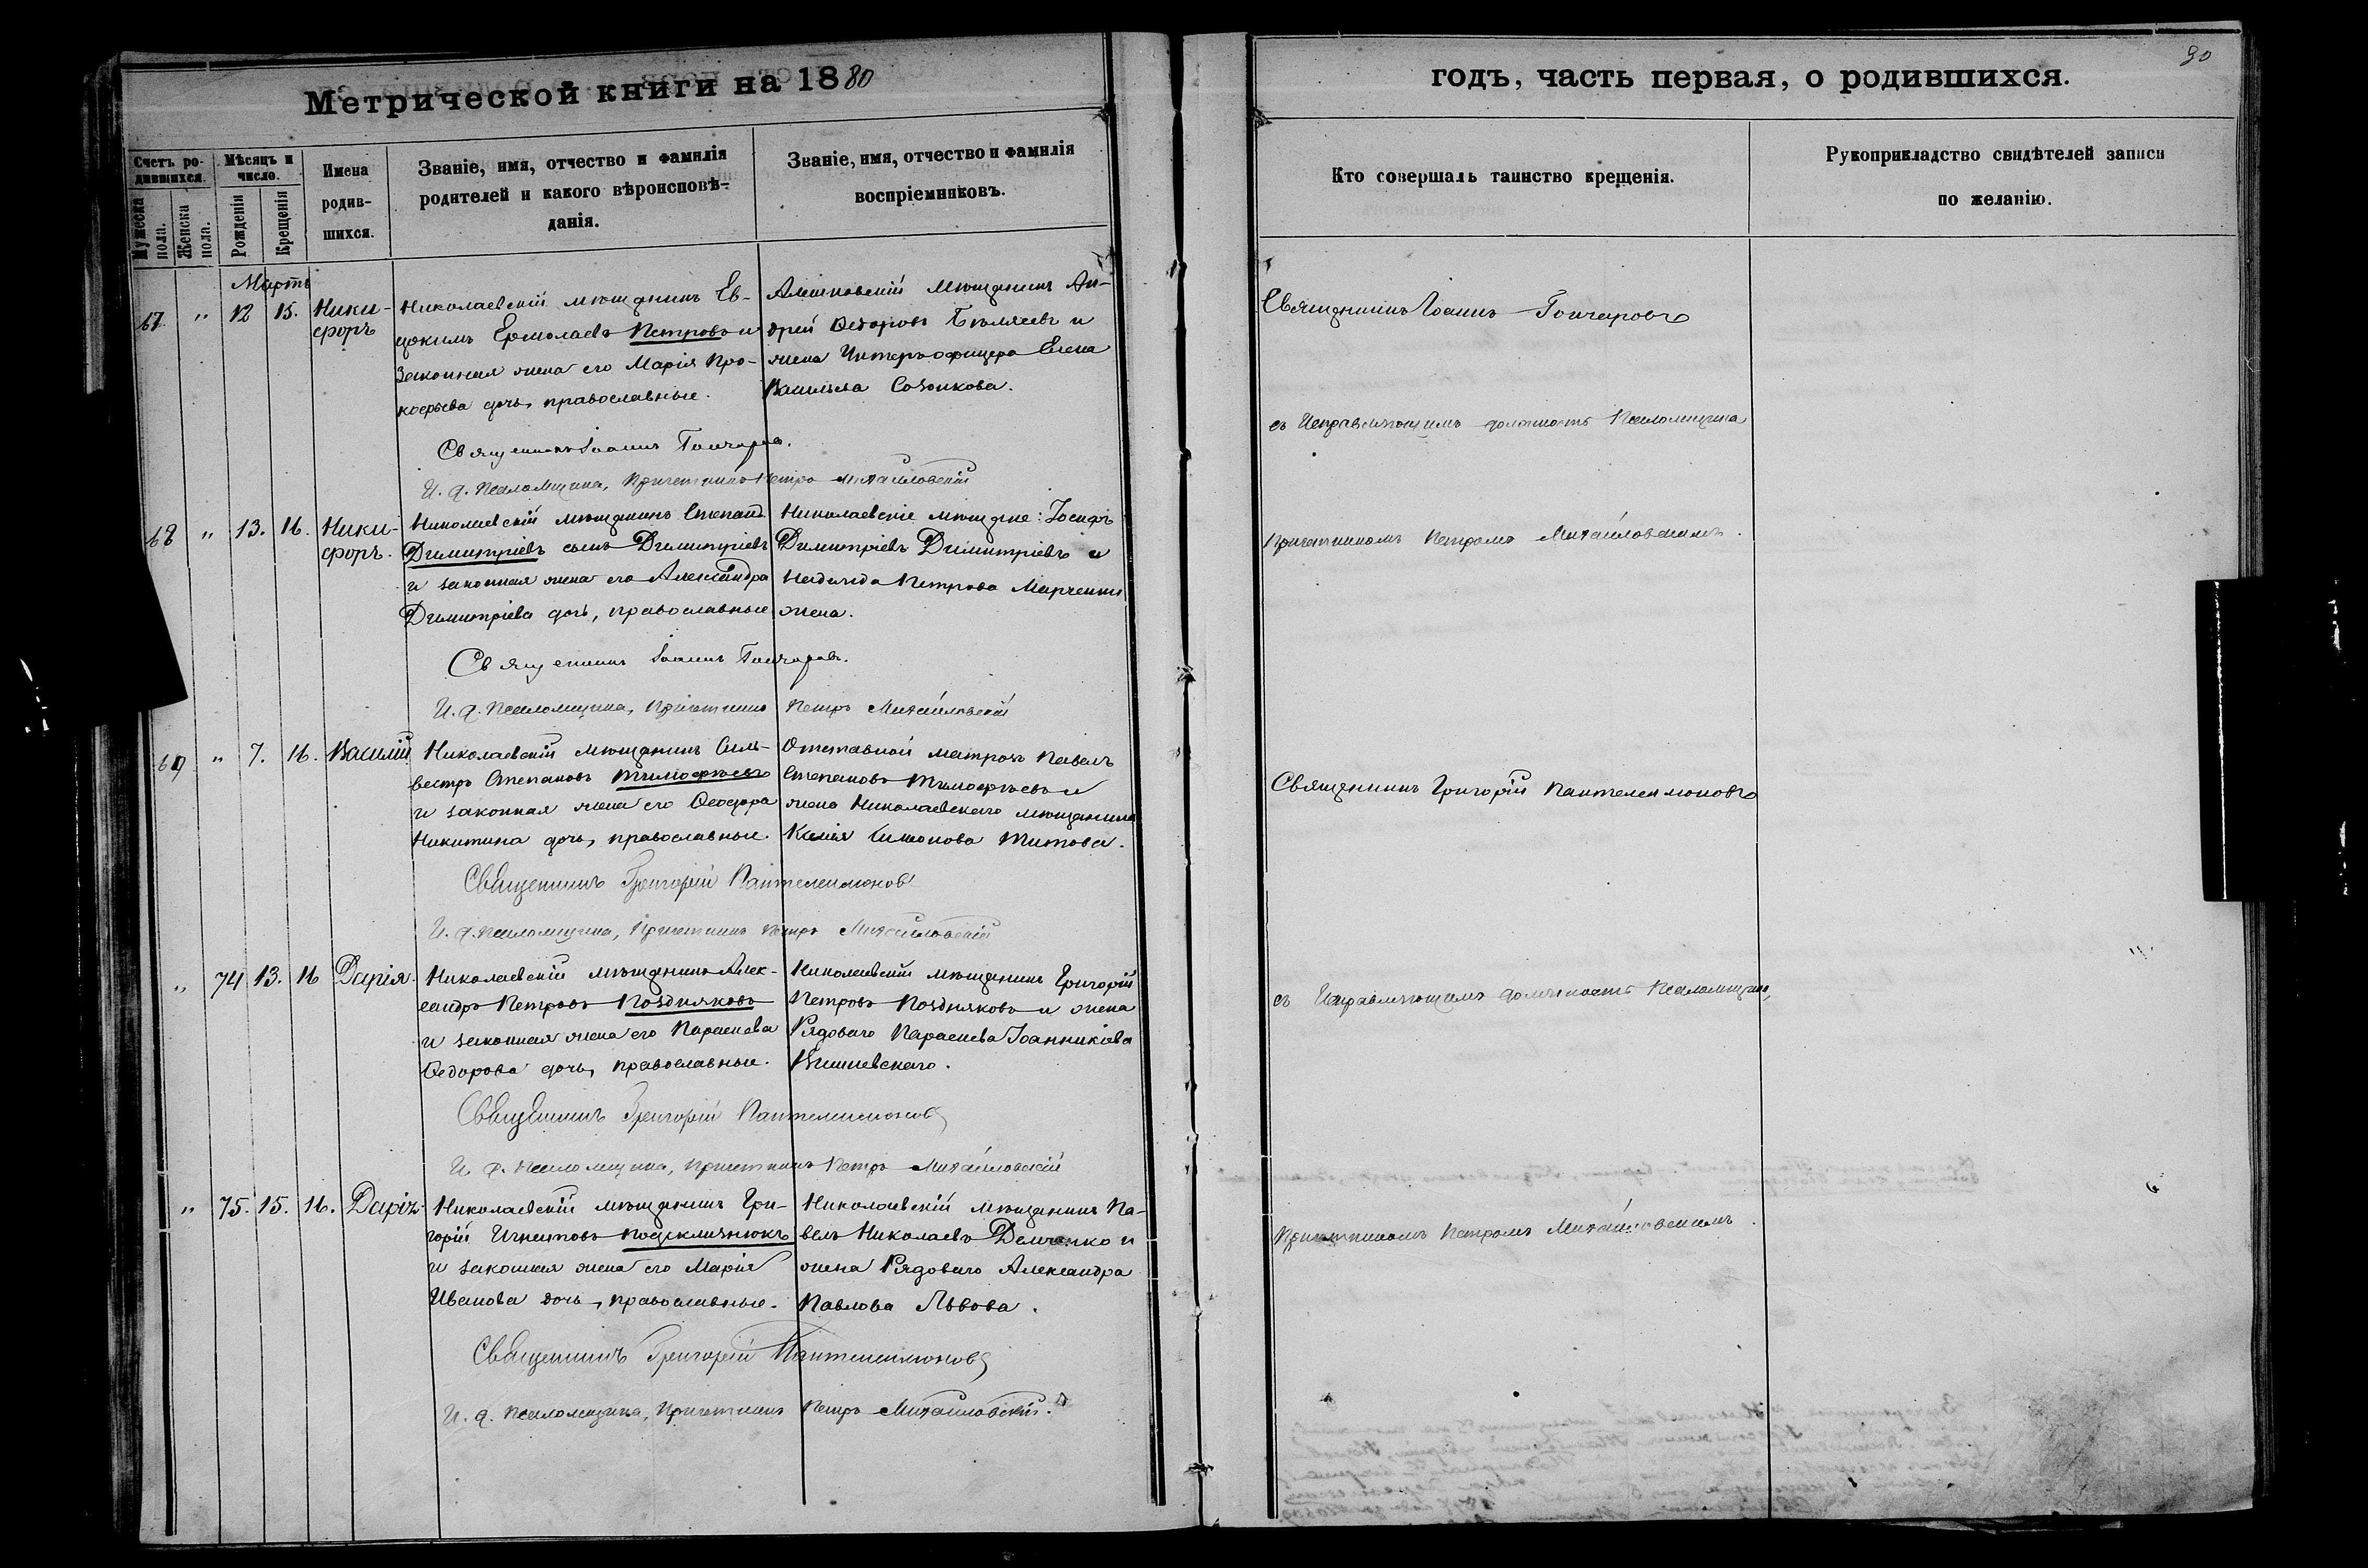 Метрической книги на 1880
Счетъ ро-
дившихся.
Мужеска пола.
Женска пола.
Мѣсяцъ и
число.
Рожденія
Крещенія
Имена
родив-
шихся.
Званіе, имя, отчество и фамилія
родителей и какого вѣроисповѣ-
данія.
Званіе, имя, отчество и фамилія
воспріемниковъ.
Мартъ
67. " 12 15. Ники-
форъ
Николаевскій мѣщанинъ Ев-
докимъ Ермолаевъ Петровъ и
законная жена его Марія Про-
кофьева дочь, православные.
Алешковскій мѣщанинъ Ан-
дрей Ѳедоровъ Бѣляевъ и
жена Унтеръ-офицера Елена
Васильева Созонкова.
Священникъ Іоаннъ Гончаровъ.
И. д. Псаломщика, Причетникъ Петръ Михайловскій
68 " 13. 16. Ники-
форъ.
Николаевскій мѣщанинъ Степанъ
Димитріевъ сынъ Димитріевъ
и законная жена его Александра
Димитріева дочь, православные
Николаевскіе мѣщане: Іосифъ
Димитріевъ Димитріевъ и
Надежда Петрова Марченки
жена.
Священникъ Іоаннъ Гончаровъ.
И. д. Псаломщика, Причетникъ Петръ Михайловскій
69 " 7. 16. Василій
Николаевскій мѣщанинъ Силь-
вестръ Степановъ Тимофѣевъ
и законная жена его Ѳеодора
Никитина дочь, православные.
Отставной матросъ Павелъ
Степановъ Тимофѣевъ и
жена Николаевскаго мѣщанина
Симонова Титова.
Священникъ Григорій Пантелеимоновъ
И. д. Псаломщика, Причетникъ Петръ Михайловскій
" 74 13. 16 Дарія.
Николаевскій мѣщанинъ Алек-
сандръ Петровъ Поздняковъ
и законная жена его Параскева
Ѳедорова дочь, православные.
Николаевскій мѣщанинъ Григорій
Петровъ Поздняковъ и жена
Рядоваго Параскева Іоанникіева
Вишневскаго.
Священникъ Григорій Пантелеимоновъ
И. д. Псаломщика, Причетникъ Петръ Михайловскій
" 75. 15. 16. Дарія.
Николаевскій мѣщанинъ Гри-
горій Игнатовъ Подключнюкъ
и законная жена его Марія
Иванова дочь, православные.
Николаевскій мѣщанинъ Па-
велъ Николаевъ Демченко и
жена Рядоваго Александра
Павлова Львова.
Священникъ Григорій Пантелеимоновъ
И. д. Псаломщика, Причетникъ Петръ Михайловскій.
годъ, часть первая, о родившихся.
Кто совершалъ таинство крещенія.
Рукоприкладство свидѣтелей записи
по желанію.
Священникъ Іоаннъ Гончаровъ
съ Исправляющимъ должность Псаломщика
Причетникомъ Петромъ Михайловскимъ.
Священникъ Григорій Пантелеимоновъ
съ Исправляющимъ должность Псаломщика,
Причетникомъ Петромъ Михайловскимъ.